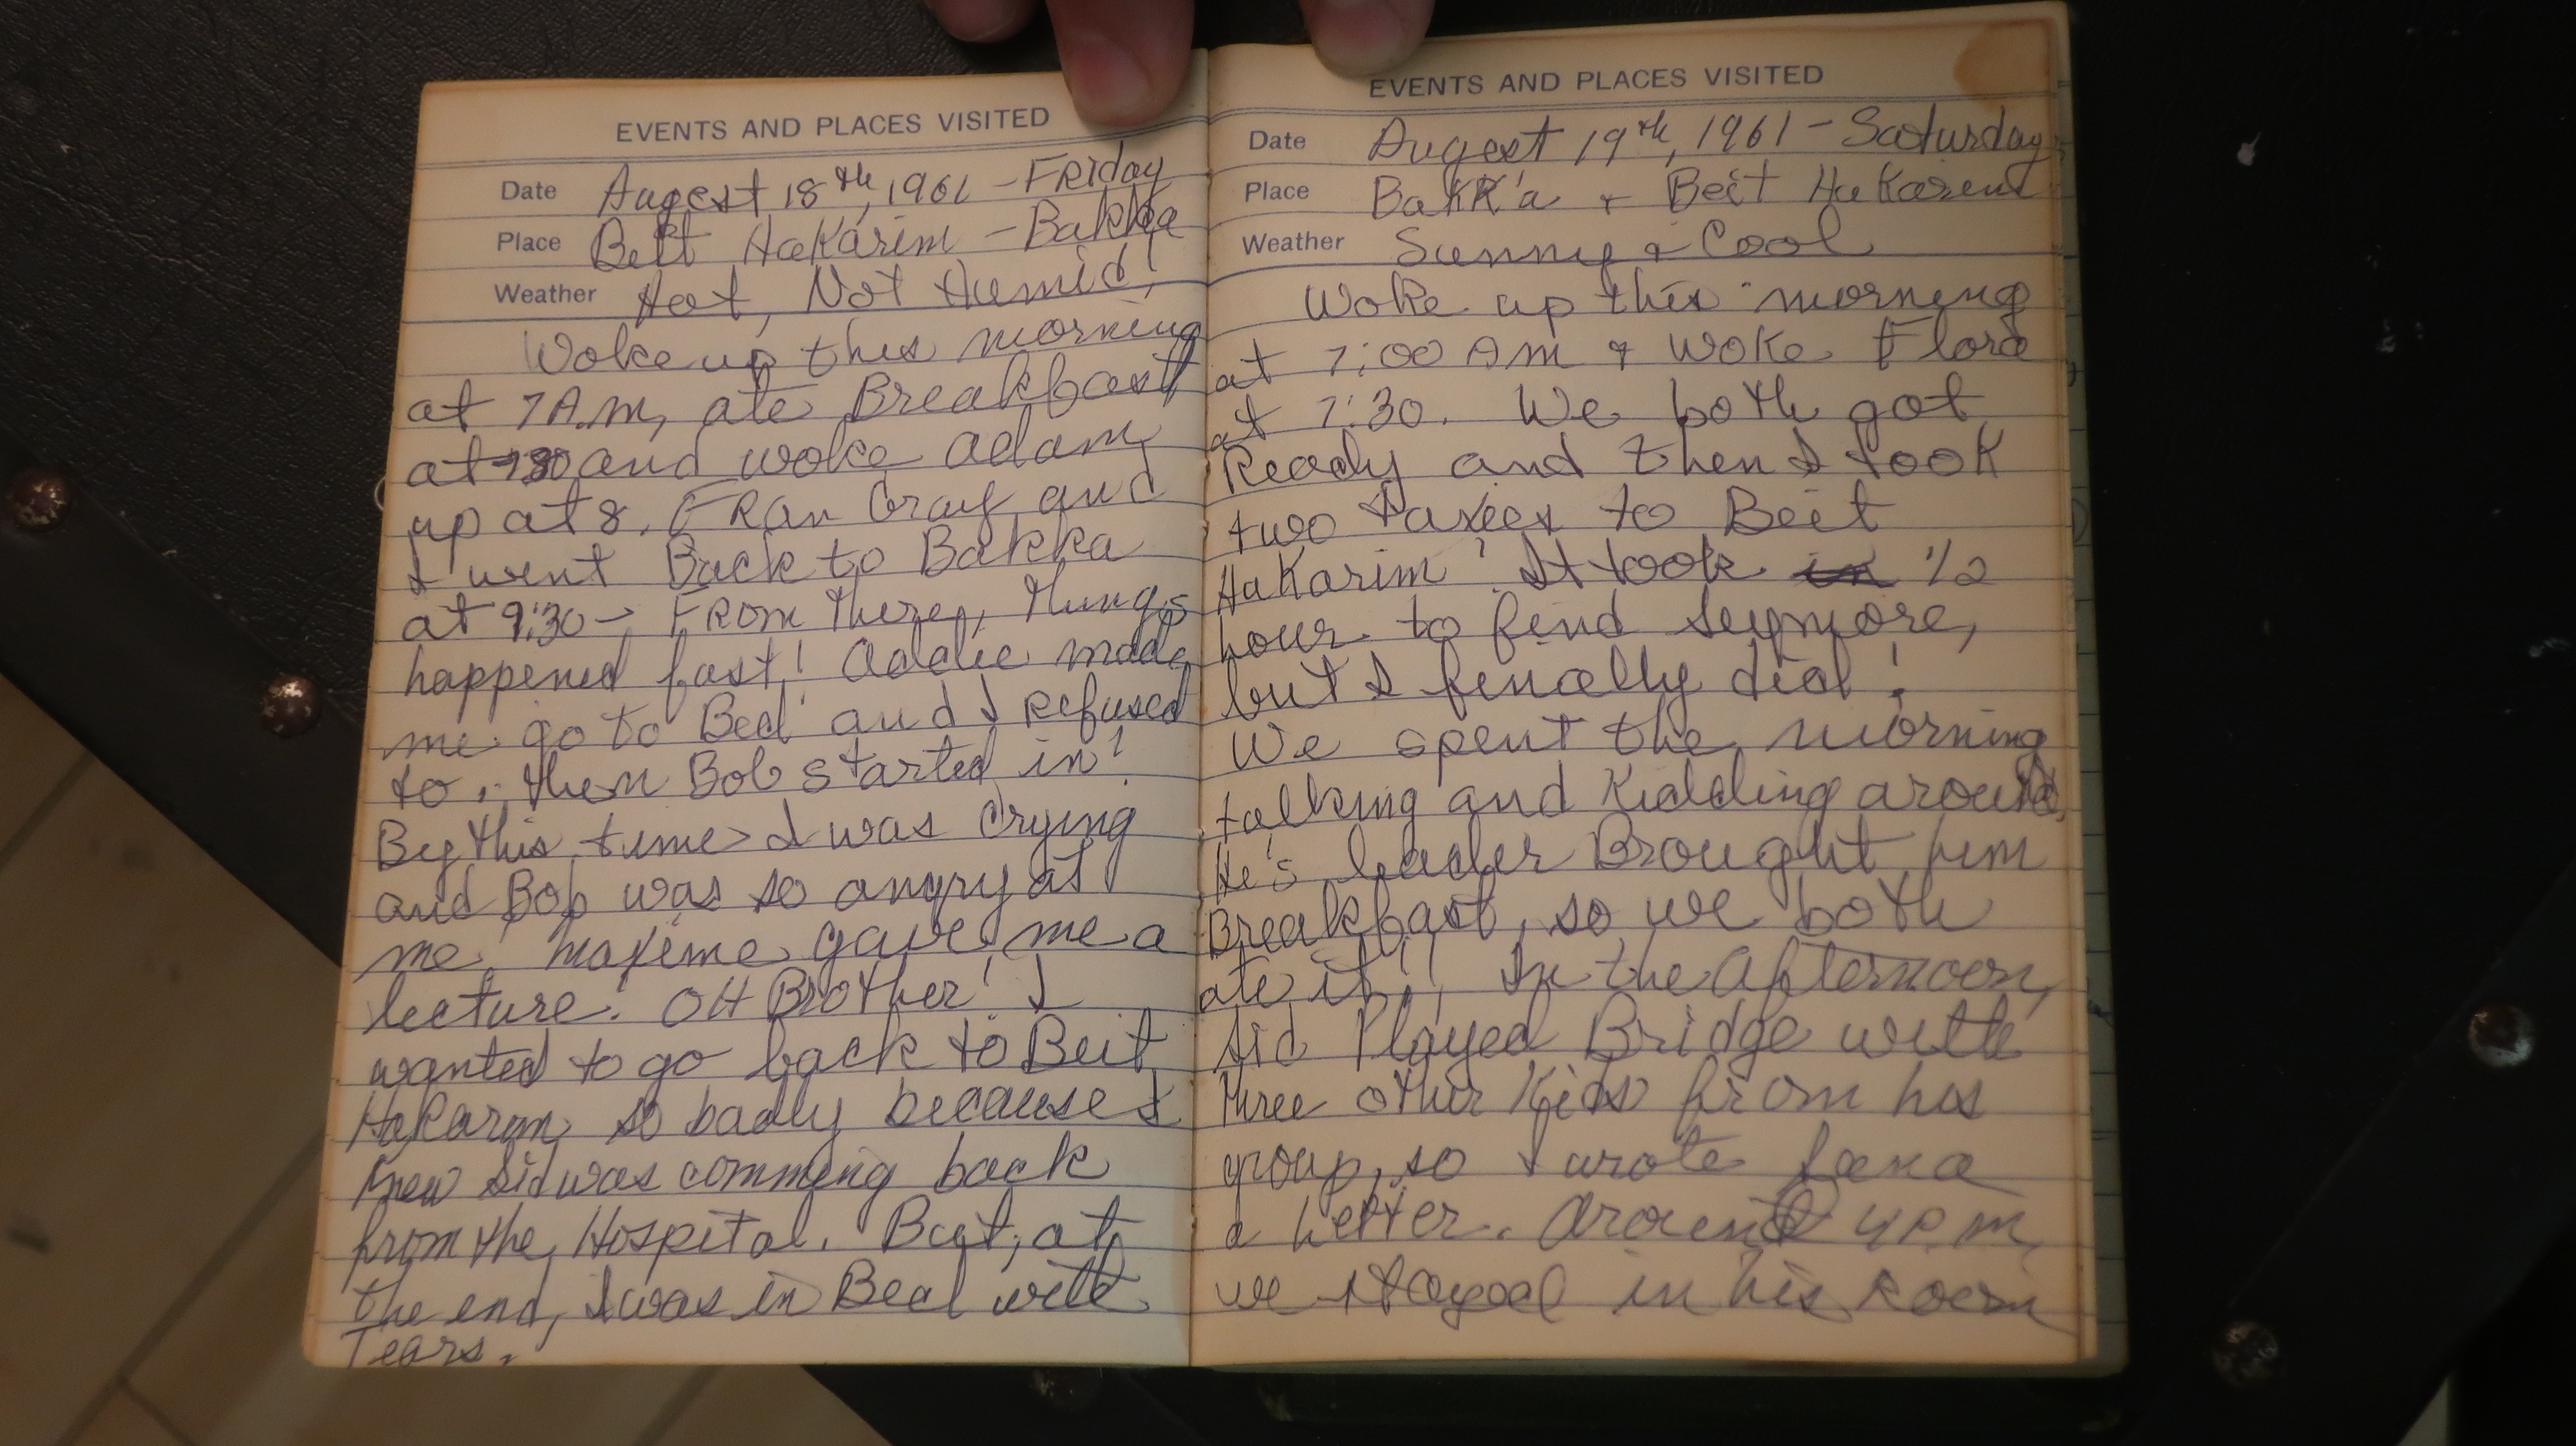 EVENTS AND PLACES VISITED
Date August 18th, 1961 - FRiday
Place Beit HaKarim - Bakka
Weather Hot, Not Humid!
Woke up this morning
at 7 A.M, ate Breakfast
at 7:30 and woke Adam
up at 8. FRan Gray and
I went Back to Bakka
at 9:30 - FRom there, things
happened fast! Addie made
me go to Bed and I Refused
to. then Bob started in!
By this time I was crying
and Bob was so angry at
me. Maxime gave me a
lecture. OH BRother! I
wanted to go back to Beit
HaKarim so badly because I
knew Sid was comming back
from the Hospital. But, at
the end, I was in Bed with
Tears.
EVENTS AND PLACES VISITED
Date August 19th, 1961 - Saturday
Place Bakk'a + Beit HaKarem
Weather Sunny & Cool
Woke up this morning
at 7:00 AM & woke Flora
at 7:30. We both got
Ready and then I took
two taxies to Beit
HaKarim! It took in 1/2
hour to find Seymore,
but I finally did!
We spent the morning
talking and Kidding around.
He's leader Brought him
Breakfast, so we both
ate it! In the Afternoon,
Sid Played Bridge with
three other Kids from his
group, so I wrote
a Letter. Around 4 P.M,
we stayed in his Room